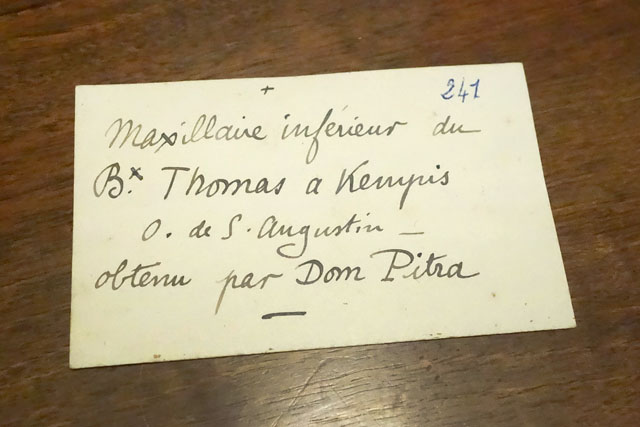 +
241
Maxillaire inférieur du
Bx Thomas a Kempis
O. de S. Augustin –
obtenu par Dom Pitra